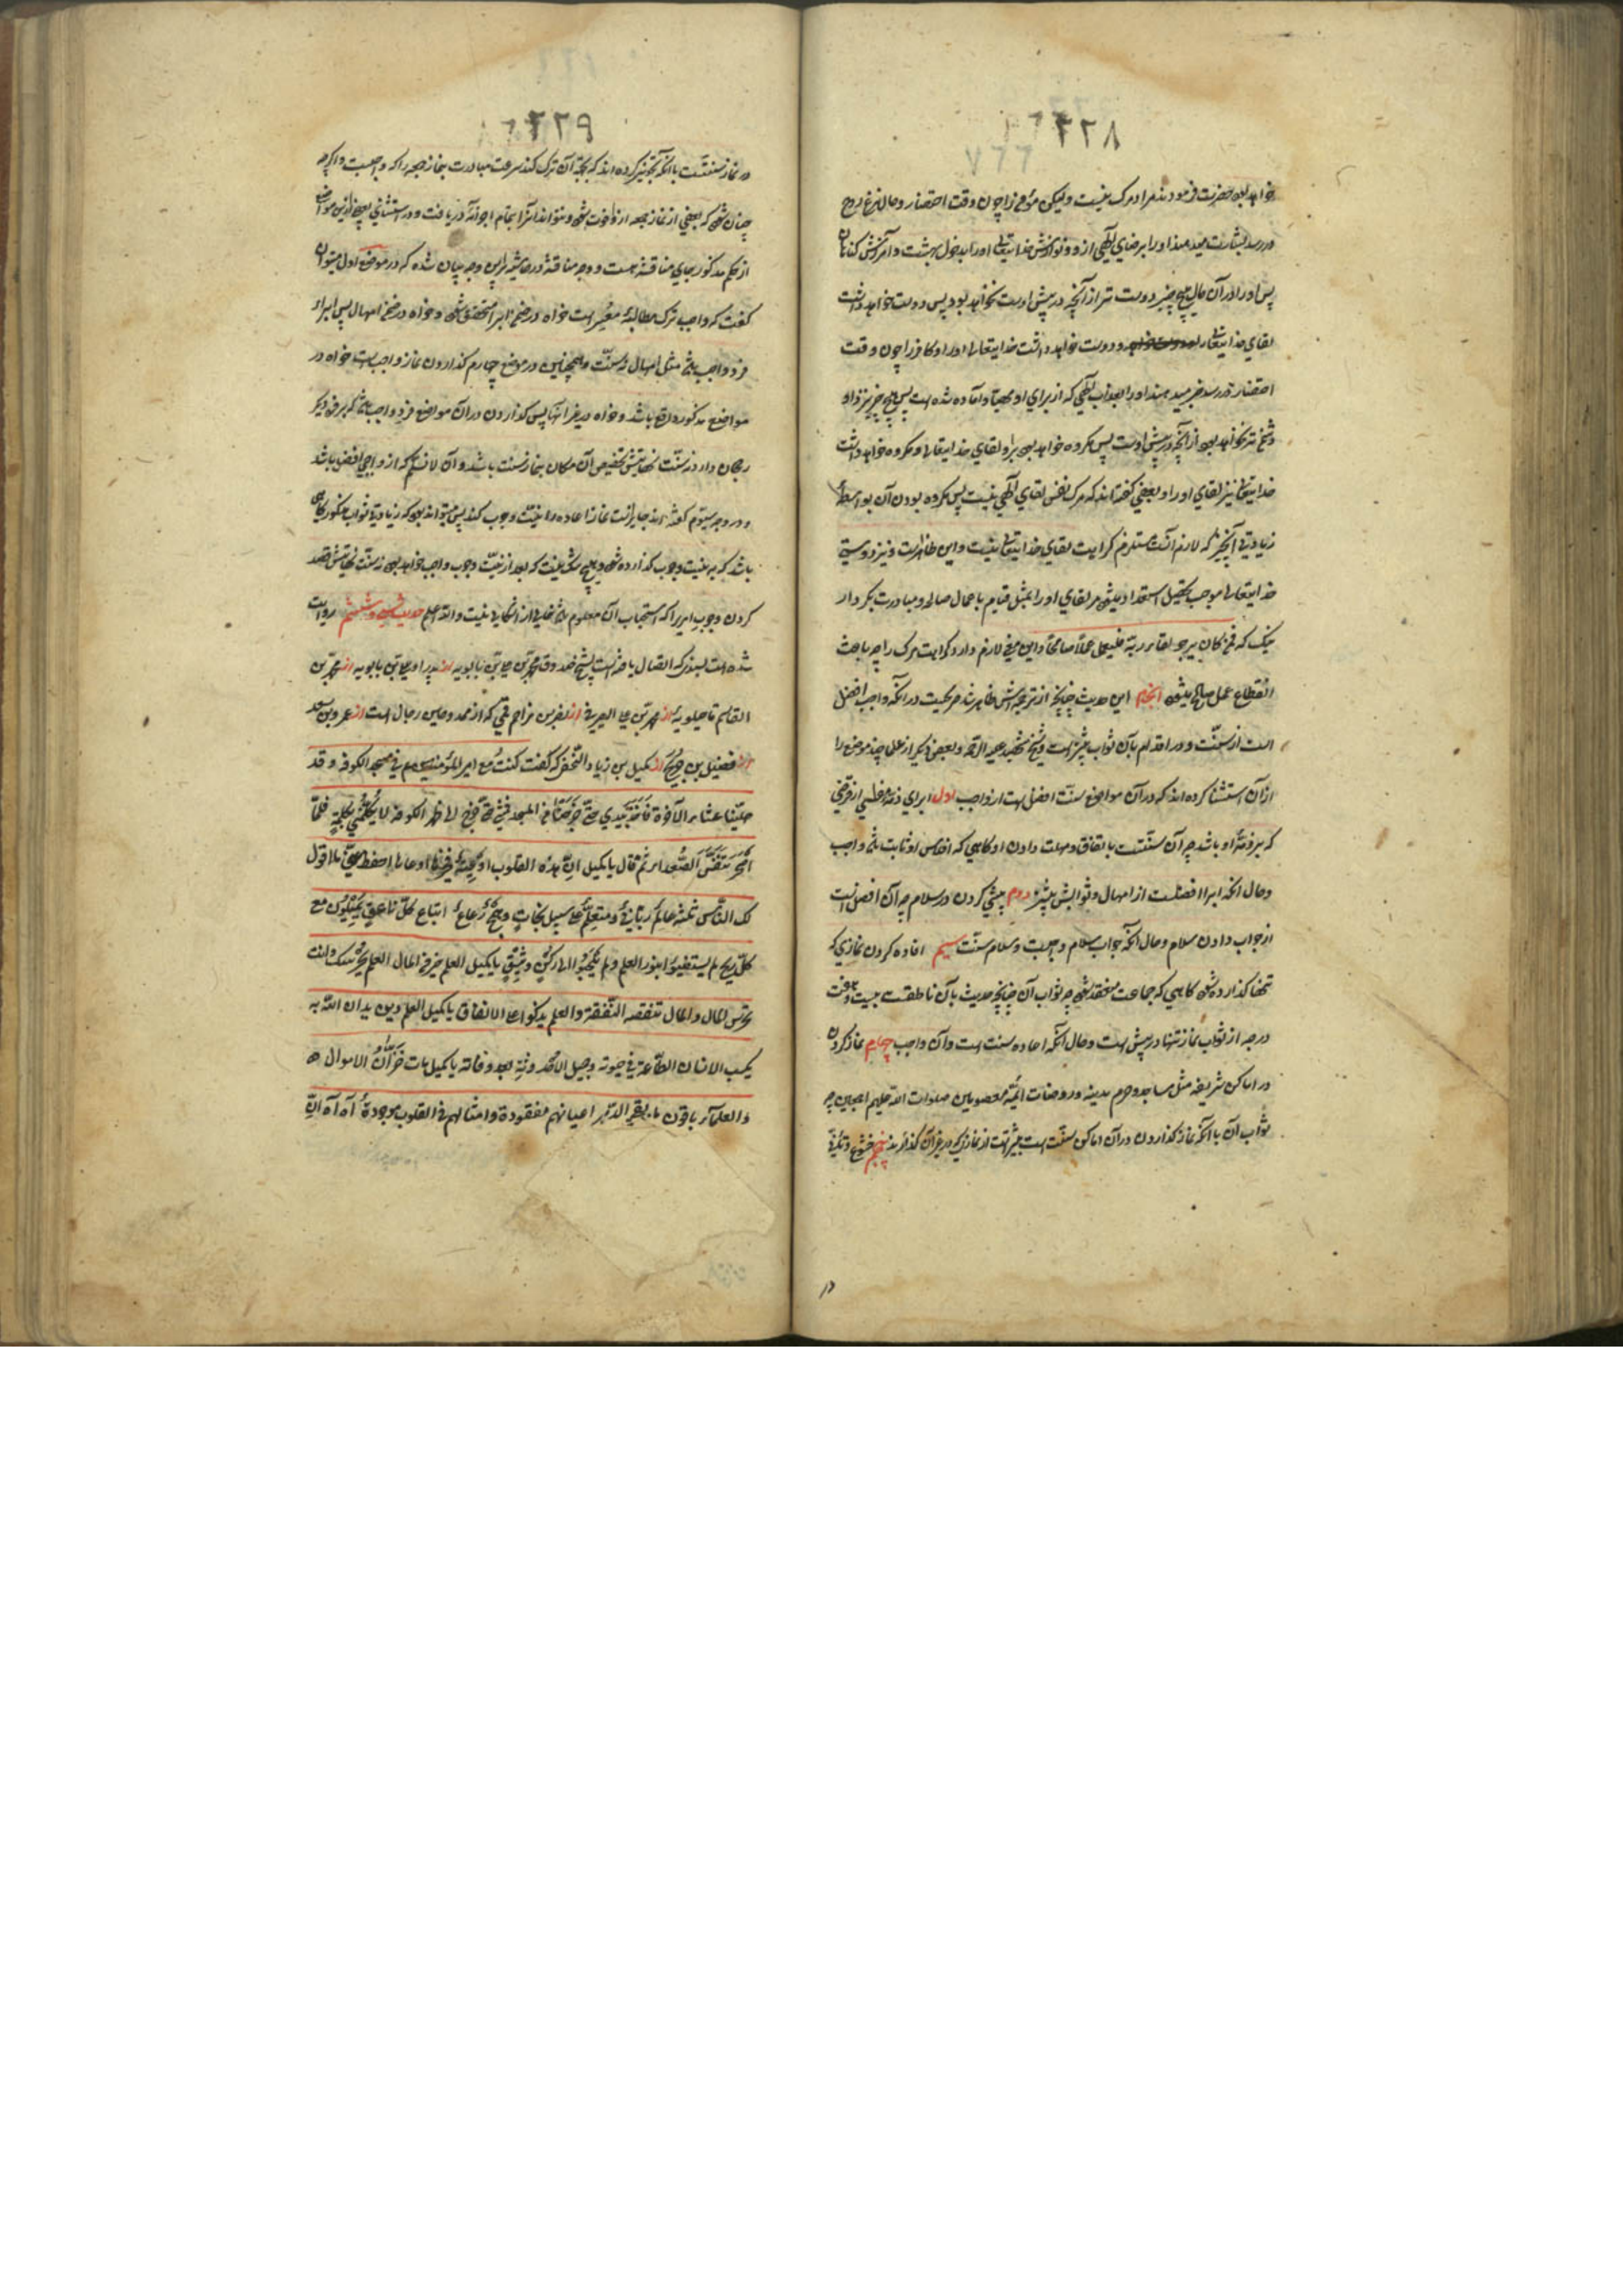 ۲۲۸
خواهد بود حضرت فرمودند مراد مرک نیست ولیکن مؤمن را چون وقت احتضار و حال نزع روح
در رسد بشارت میدهند او را برضای الهی از و و نوازش خدایتعالی او را بدخول بهشت و آمرزش کناهان
پس او را در آن حال هیچ چیز دوست تر از آنچه در پیش اوست نخواهد بود پس دوست خواهد داشت
لقای خدایتعالی و دوست خواهد داشت خدایتعالی لقای او را و کافر را چون وقت
احتضار در رسد خبر میدهند او را بعذاب الهی که از برای او مهیا و آماده شده است پس هیچ چیز نزد او
دشمن تر نخواهد بود از آنچه در پیش اوست پس مکروه خواهد بود برو لقای خدایتعالی و مکروه خواهد داشت
خدایتعالی نیز لقای او را و بعضی کفته اند که مرک نفس لقای الهی نیست پس مکروه بودن آن بواسطه
زیادتی که لازم آنست مستلزم کراهیت لقای خدایتعالی نیست و این ظاهرست و نیز دوستی
خدایتعالی موجب تحصیل استعداد میشود مر لقای او را بمثل قیام باعمال صالح و مبادرت بکردار
نیک که فمن کان یرجو لقاء ربه فلیعمل عملا صالحا و این معنی لازم دارد کراهیت مرک را چه باعث
انقطاع عمل صالح میشود انجام این حدیث چنانچه از ترجمه اش ظاهر شد صریحست در آنکه واجب افضل
است از سنت و در اقدام بآن ثواب بیشتر است و شیخ شهید علیه الرحمه و بعضی دیگر از علما چند موضع را
از آن استثنا کرده اند که در آن مواضع سنت افضل است از واجب اول ابرای ذمه مفلسی از قرضی
که بر ذمه او باشد چه آن سنتست باتفاق و مهلت دادن او کاهی که افلاس او ثابت باشد واجب
و حال انکه ابرا افضلست از امهال و ثوابش بیشتر دوم پیشی کردن در سلام چه آن افضل است
از جواب دادن سلام و حال آنکه جواب سلام واجبست و سلام سنت سیم اعاده کردن نمازی که
تنها کذارده شود کاهی که جماعت منعقد شود چه ثواب آن چنانچه حدیث بآن ناطقست بیست و هفت
درجه از ثواب نماز تنها در پیش است و حال آنکه اعاده سنت است و آن واجب چهارم نماز کردن
در اماکن شریفه مثل مساجد و حرم مدینه و روضات ائمه معصومین صلوات الله علیهم اجمعین چه
ثواب آن با آنکه نماز کذاردن در آن اماکن سنت است بیشتر است از نمازی که در غیر آن کذارند پنجم خشوع و تأنی
۲۲۹
در نماز سنتست با آنکه تجویز کرده اند که بجهة آن ترک کند سرعت مبادرت بنماز جمعه را که واجبست و اکرچه
چنان شود که بعضی از نماز جمعه ازو فوت شود و نتواند آنرا بتمام اجزائه دریافت و در استثنای بعضی ازین مواضع
از حکم مذکور جای مناقشه هست و وجه مناقشه در حاشیه برین وجه بیان شده که در موضع اول میتوان
کفت که واجب ترک مطالبه معسر است خواه در ضمن ابرا متحقق شود و خواه در ضمن امهال پس ابراء
فرد واجب باشد مثل امهال نه سنت و همچنین در موضع چهارم کذاردن نماز واجب است خواه در
مواضع مذکوره واقع باشد و خواه در غیر آنها پس کذاردن در آن مواضع فرد واجب باشد که بر فرد دیکر
رجحان دارد نه سنت نهایتش تخصیص آن مکان بنماز سنت باشد و آن لا نسلم که از واجبی افضل باشد
و در وجه سیوم کفته اند جایز است نماز اعاده را بنیت وجوب کند پس میتواند بود که زیادتی ثواب مذکور کاهی
باشد که به نیت وجوب کذارده شود و هیچ شک نیست که بعد از نیت وجوب واجب خواهد بود نه سنت نهایتش قصد
کردن وجوب امریرا که استحباب آن معلوم باشد خالی از اشکالی نیست والله اعلم حدیث سی و ششم روایت
شده است بسندی که اتصال یافته است بشیخ صدوق محمد بن علی بن بابویه از پدر او علی بن بابویه از محمد بن
القاسم ماجیلویه از محمد بن علی الصیرفی از نصر بن مزاحم که از عمد و حاسن رجال است از عمرو بن سعد
از فضیل بن خدیج از کمیل بن زیاد النخعی که کفت کنت مع امیر المؤمنین ع م فی مسجد الکوفه و قد
صلینا عشاء الاخرة فاخذ بیدی حتی خرجنا من المسجد فمشی حتی خرج الی ظهر الکوفه لا یکلمنی بکلمة فلما
اصحر تنفس الصعداء ثم قال یا کمیل ان هذه القلوب اوعیة فخیرها اوعاها احفظ عنی ما اقول
لک الناس ثلثه عالم ربانی و متعلم علی سبیل نجاة و همج رعاع اتباع کل ناعق یمیلون مع
کل ریح لم یستضیئوا بنور العلم و لم یلجئوا الی رکن وثیق یا کمیل العلم خیر من المال العلم یحرسک و انت
تحرس المال و المال تنقصه النفقة و العلم یزکوا علی الانفاق یا کمیل العلم دین یدان الله به
یکسب الانسان الطاعة فی حیوته و جمیل الاحدوثة بعد وفاته یا کمیل مات خزان الاموال
و العلماء باقون ما بقی الدهر اعیانهم مفقودة و امثالهم فی القلوب موجودة آه آه ان